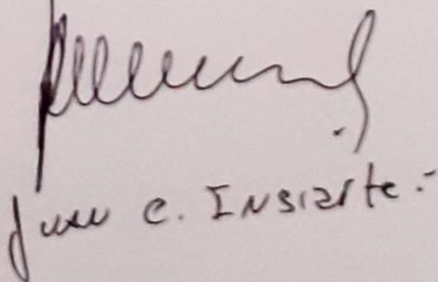 Juan C. Insiarte.-